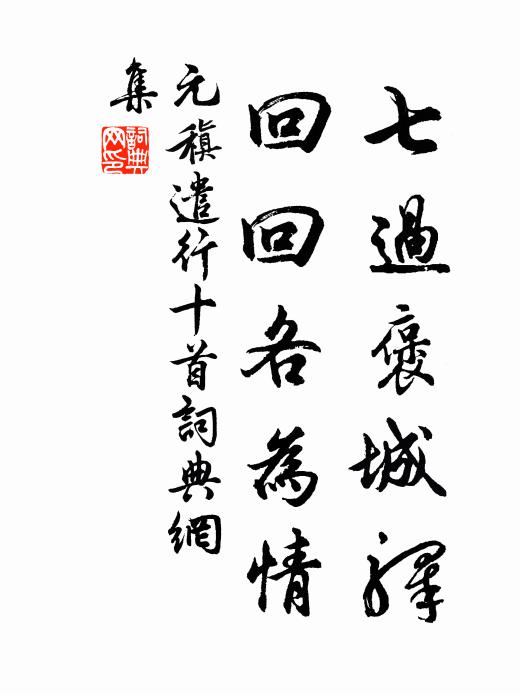 七過褒城驛
回回各為情
元稹遣行十首詞典網
集
詞典网印